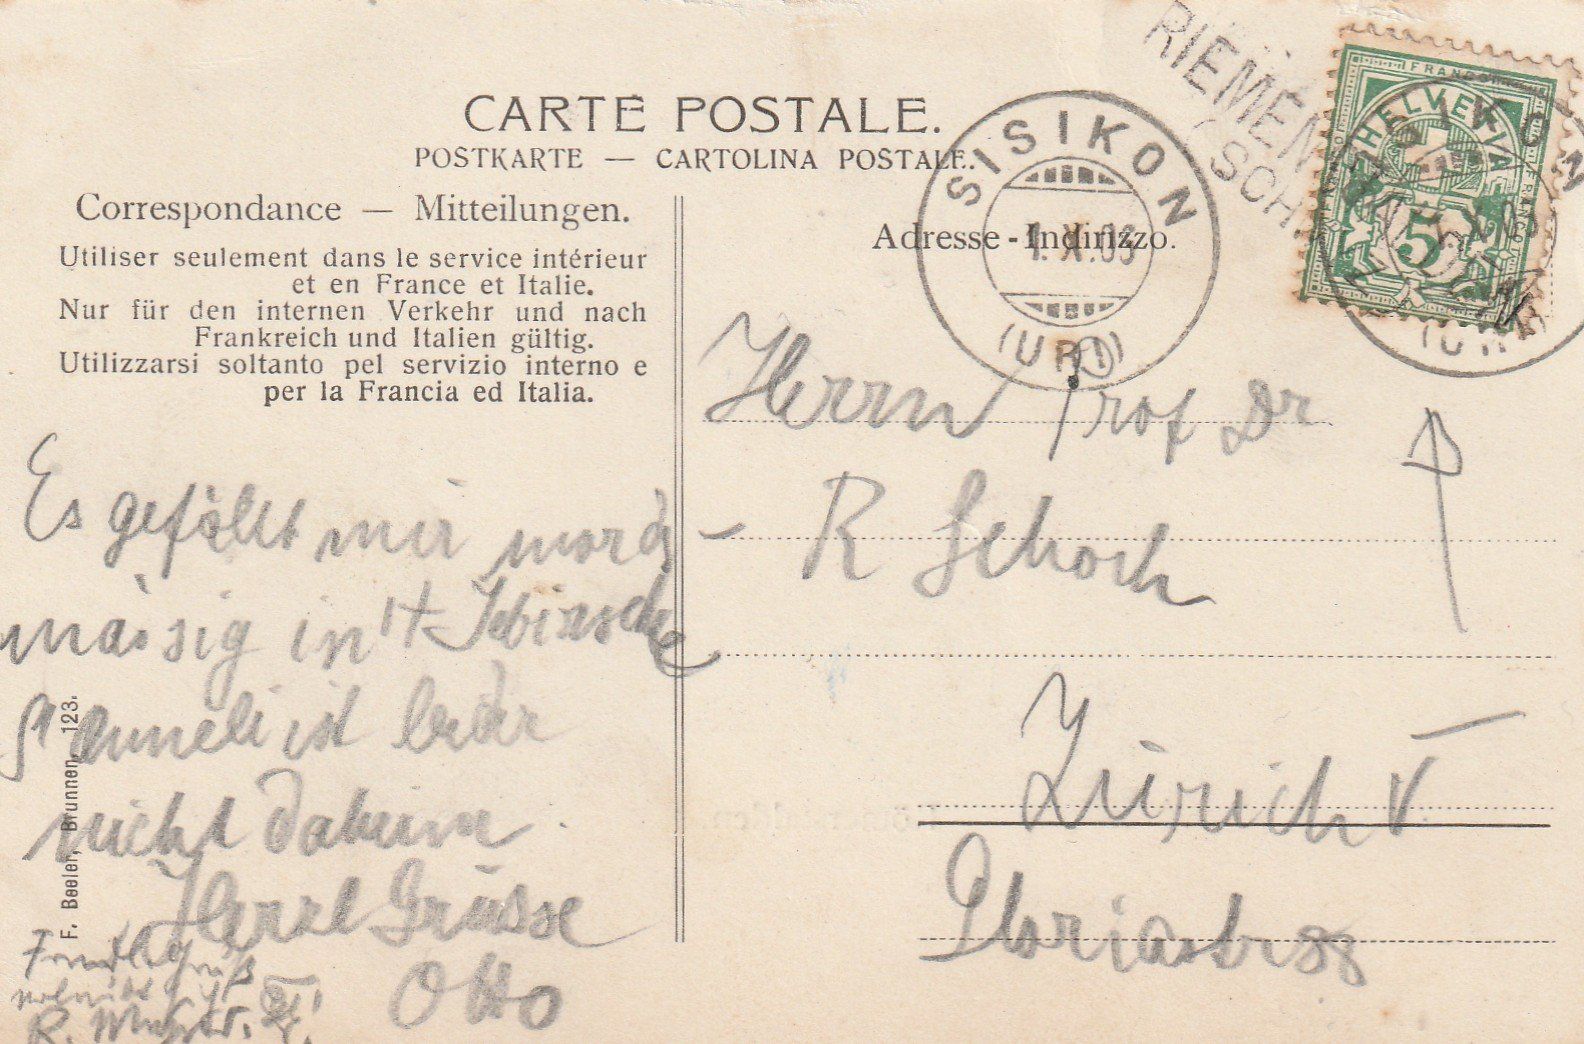 CARTE POSTALE.
POSTKARTE — CARTOLINA POSTALE.
Correspondance — Mitteilungen.
Utiliser seulement dans le service intérieur
et en France et Italie.
Nur für den internen Verkehr und nach
Frankreich und Italien gültig.
Utilizzarsi soltanto pel servizio interno e
per la Francia ed Italia.
Adresse - Indirizzo.
RIEMEN
SISIKON
1.X.03
(URI)
FRANCO
HELVETIA
5
SISIKON
(URI)
Es gefällt mir mords
mässig in
Anneli ist leider
nicht daheim.
Herzl Grüsse
Otto
F. Beeler, Brunnen, 123.
Herrn Prof Dr
R Schoch
Zürich V
Gloriastr 88